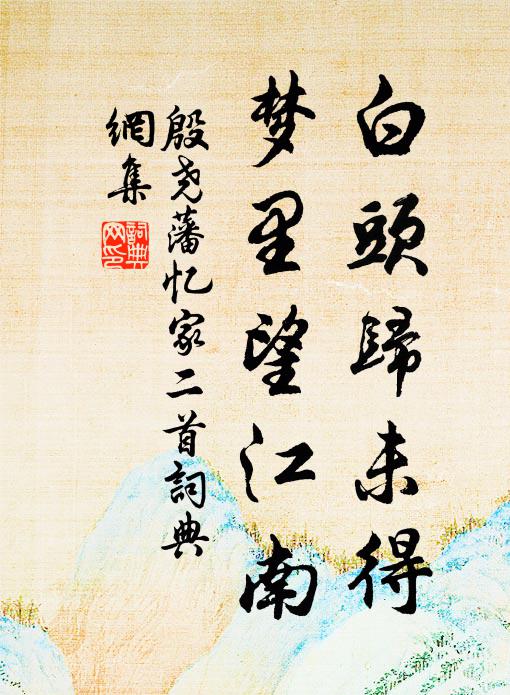 白頭歸未得
梦里望江南
殷尧藩忆家二首詞典
網集
詞典
网印